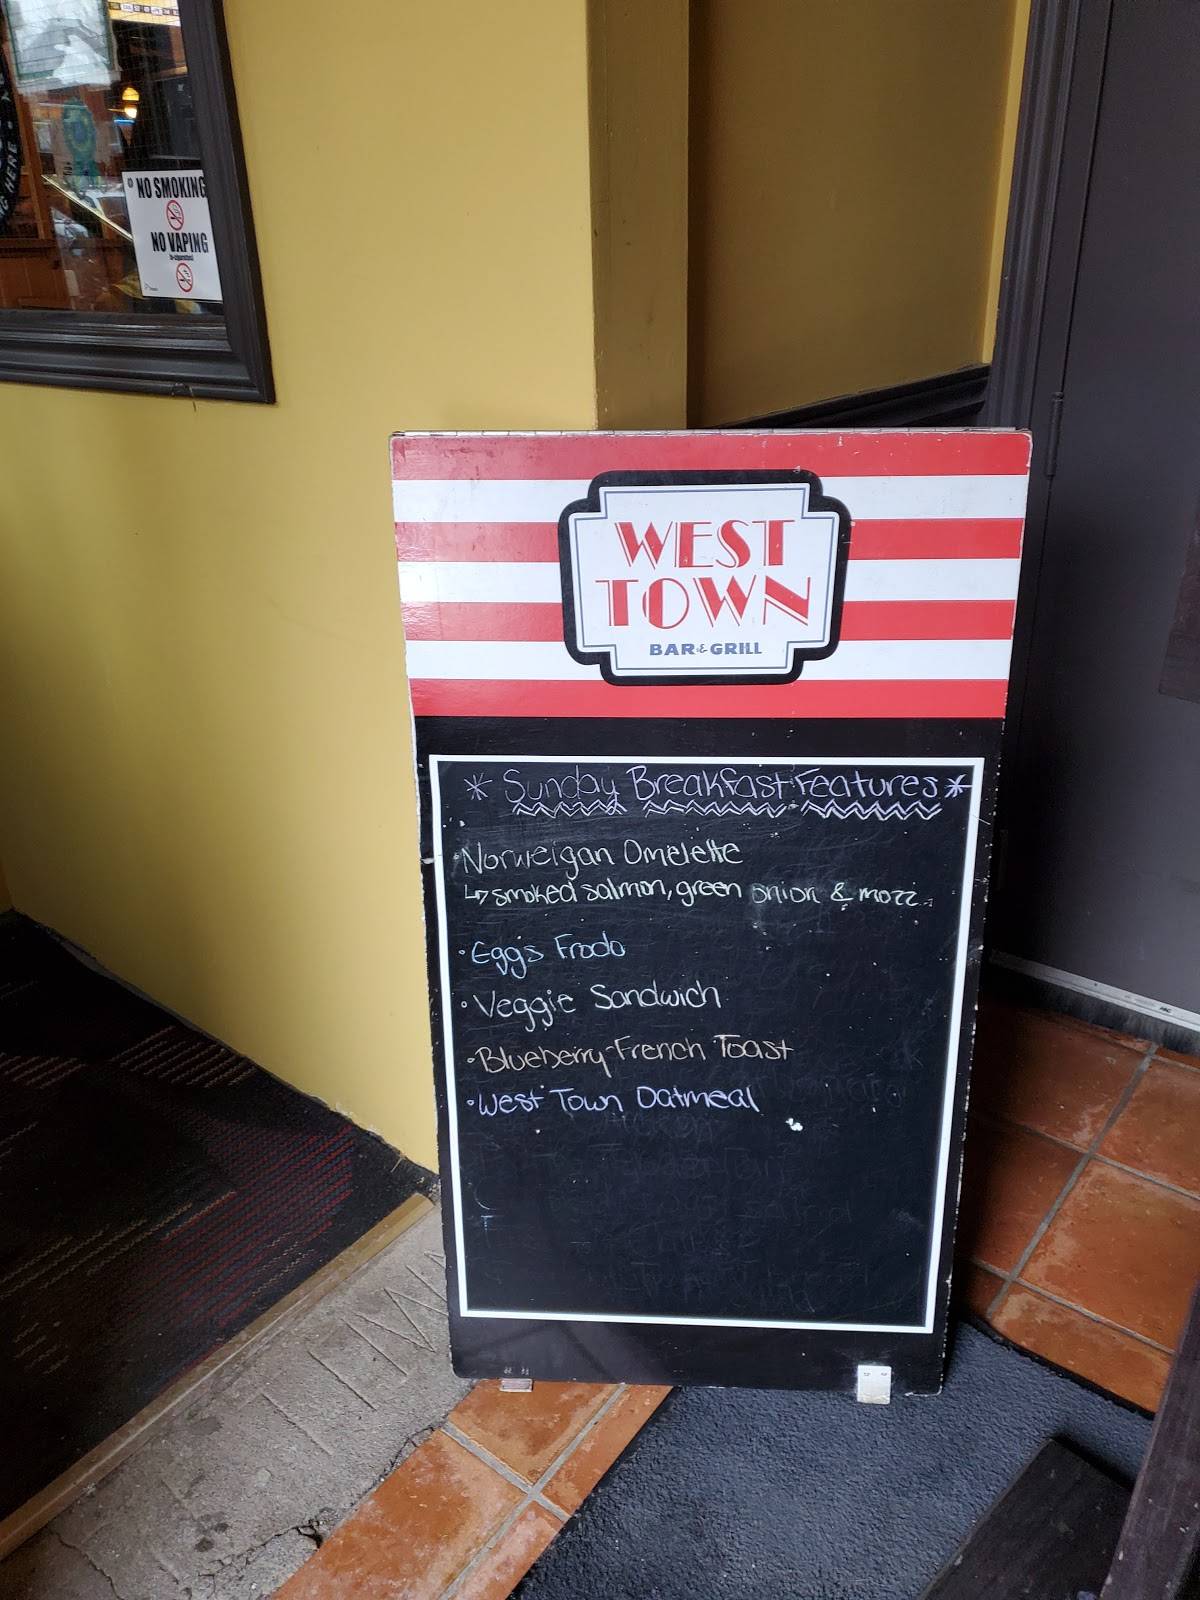 NO SMOKING
NO VAPING
HERE
WEST
TOWN
BAR & GRILL
* Sunday Breakfast Features *
• Norweigan Omelette
↳ smoked salmon, green onion & mozz.
• Eggs Frodo
• Veggie Sandwich
• Blueberry French Toast
• West Town Oatmeal